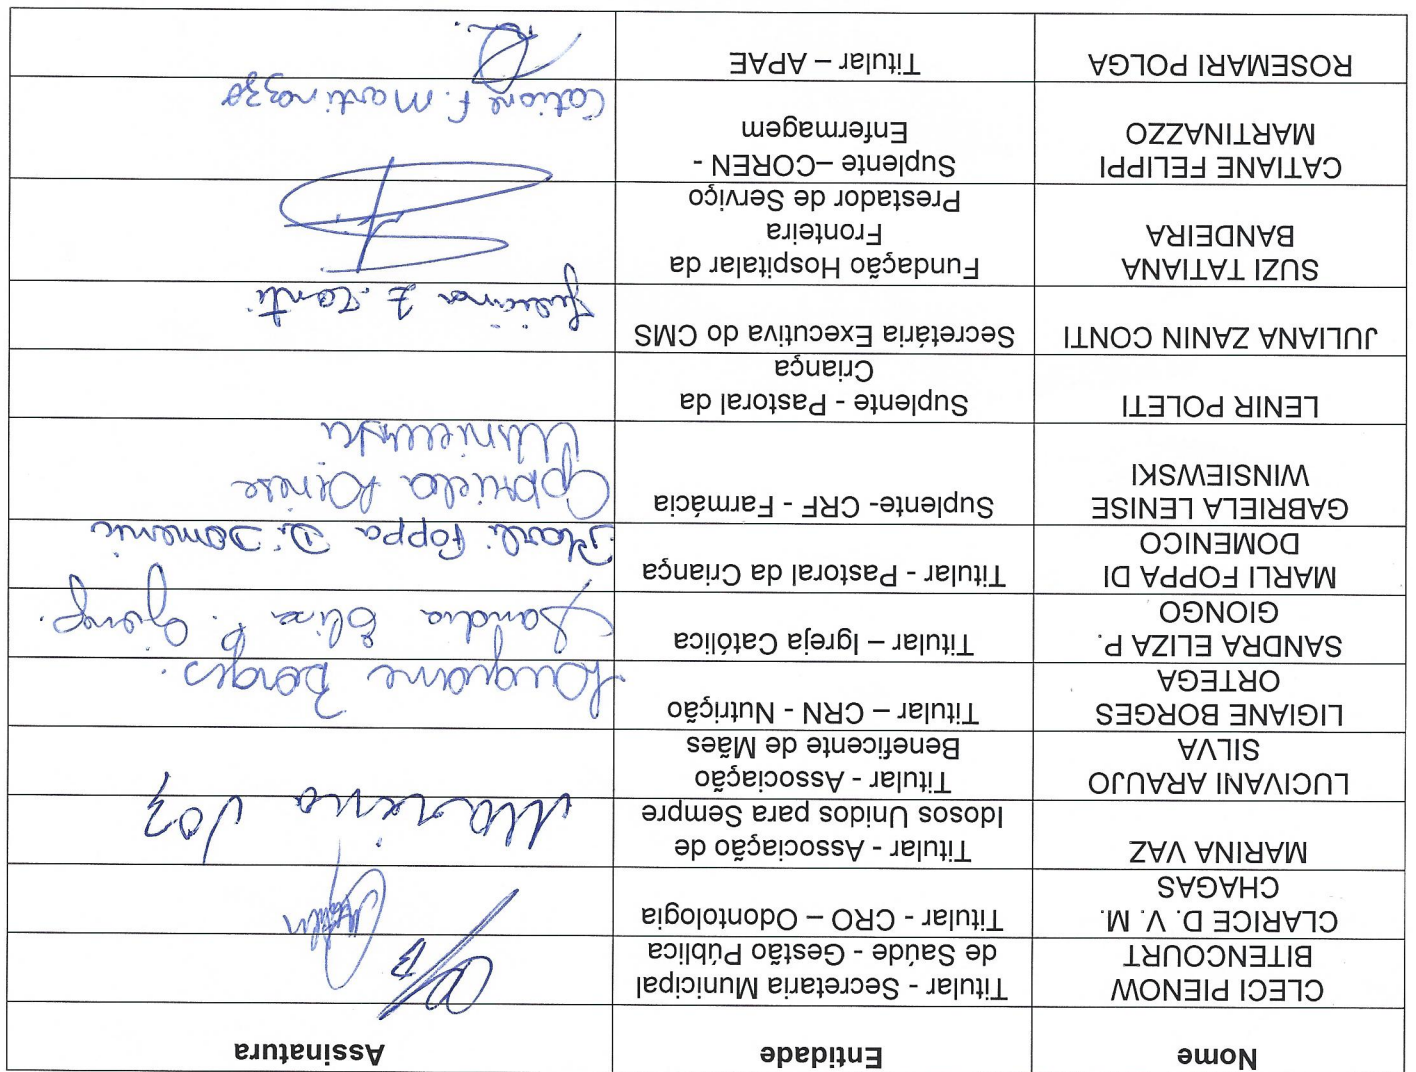 Nome Entidade Assinatura
CLECI PIENOW Titular - Secretaria Municipal
BITENCOURT de Saúde - Gestão Pública
CLARICE D. V. M. Titular - CRO – Odontologia
CHAGAS
MARINA VAZ Titular - Associação de Marina Vaz
Idosos Unidos para Sempre
LUCIVANI ARAUJO Titular - Associação
SILVA Beneficente de Mães
LIGIANE BORGES Titular – CRN - Nutrição Borges.
ORTEGA
SANDRA ELIZA P. Titular – Igreja Católica Sandra Eliza P.
GIONGO
MARLI FOPPA DI Titular - Pastoral da Criança Marli Foppa Di Domenic
DOMENICO
GABRIELA LENISE Suplente- CRF - Farmácia Gabriela Lenise
WINSIEWSKI
LENIR POLETI Suplente - Pastoral da
Criança
JULIANA ZANIN CONTI Secretária Executiva do CMS Juliana Z. Conti
SUZI TATIANA Fundação Hospitalar da
BANDEIRA Fronteira
Prestador de Serviço
CATIANE FELIPPI Suplente –COREN -
MARTINAZZO Enfermagem
Catiane F. Martinazzo
ROSEMARI POLGA Titular – APAE